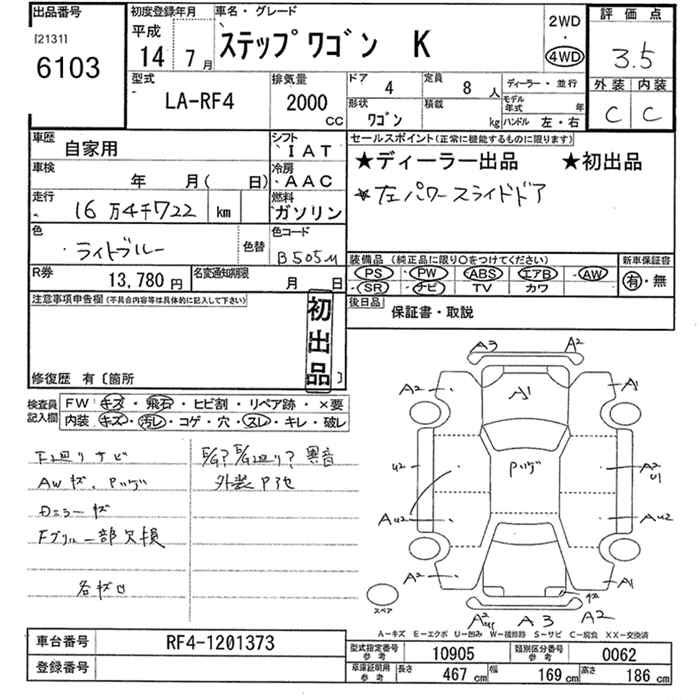 出品番号
[2131]
6103
初度登録年月
平成
14年 7月
車名・グレード
ステップワゴン K
2WD
4WD
評価点
3.5
外装 内装
C C
型式
LA-RF4
排気量
2000 CC
ドア 4
定員 8人
ディーラー・並行
形状 ワゴン
積載 kg
モデル年式 年
ハンドル 左・右
車歴 自家用
シフト IAT
車検 年 月( 日)
冷房 AAC
走行 16万4千722 km
燃料 ガソリン
色 ライトブルー
色替
色コード B505M
R券 13,780円
名変通知期限 月 日
セールスポイント(正常に機能するものに限ります)
★ディーラー出品 ★初出品
★左パワースライドドア
装備品 (純正品に限り〇をつけてください)
新車保証書
PS PW ABS エアB AW
SR ナビ TV カワ
有・無
後日品 保証書・取説
注意事項申告欄(不具合内容等は具体的に記入して下さい)
初出品
修復歴 有〔箇所 〕
検査員記入欄
FW キズ・飛石・ヒビ割・リペア跡・×要
内装 キズ・汚レ・コゲ・穴・スレ・キレ・破レ
F廻りサビ
AWキズ、
Dミラーキズ
Fグリル一部欠損
各キズ凹
E/G? E/G廻り? 異音
外装
A3 A2
A2 A1 A1
U2 A2
U1
AU2 AU2
A2 A1
A2 A3 A2
スペア
A-キズ E-エクボ U-凹み W-補修跡 S-サビ C-腐食 XX-交換済
車台番号 RF4-1201373
登録番号
型式指定番号 参考 10905
類別区分番号 参考 0062
車庫証明用 参考 長さ 467cm 幅 169cm 高さ 186cm